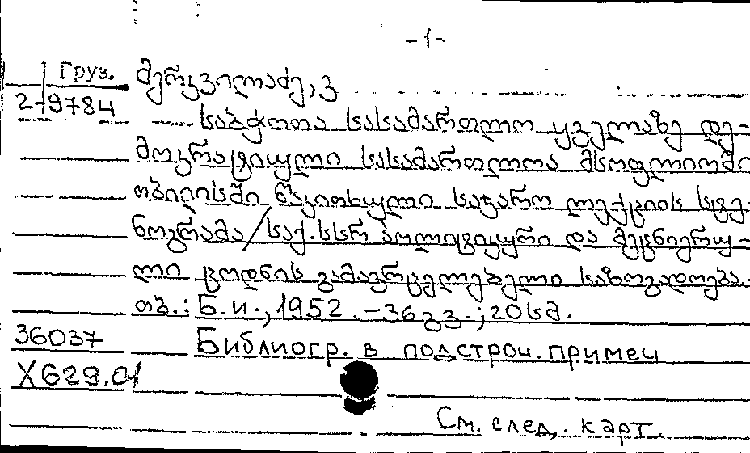 -1-
Груз. მერკვილაძე, ვ
2-9784
საბჭოთა სასამართლო ყველაზე დე-
მოკრატიული სასამართლოა მსოფლიოში
თბილისში წაკითხული საჯარო ლექციის სტე-
ნოგრამა/საქ. სსრ პოლიტიკური და მეცნიერუ-
ლი ცოდნის გამავრცელებელი საზოგადოება.
თბ.: Б.и., 1952. - 36 გვ.; 20 სმ.
36037 Библиогр. в подстроч. примеч
X629.01
См. след. карт.